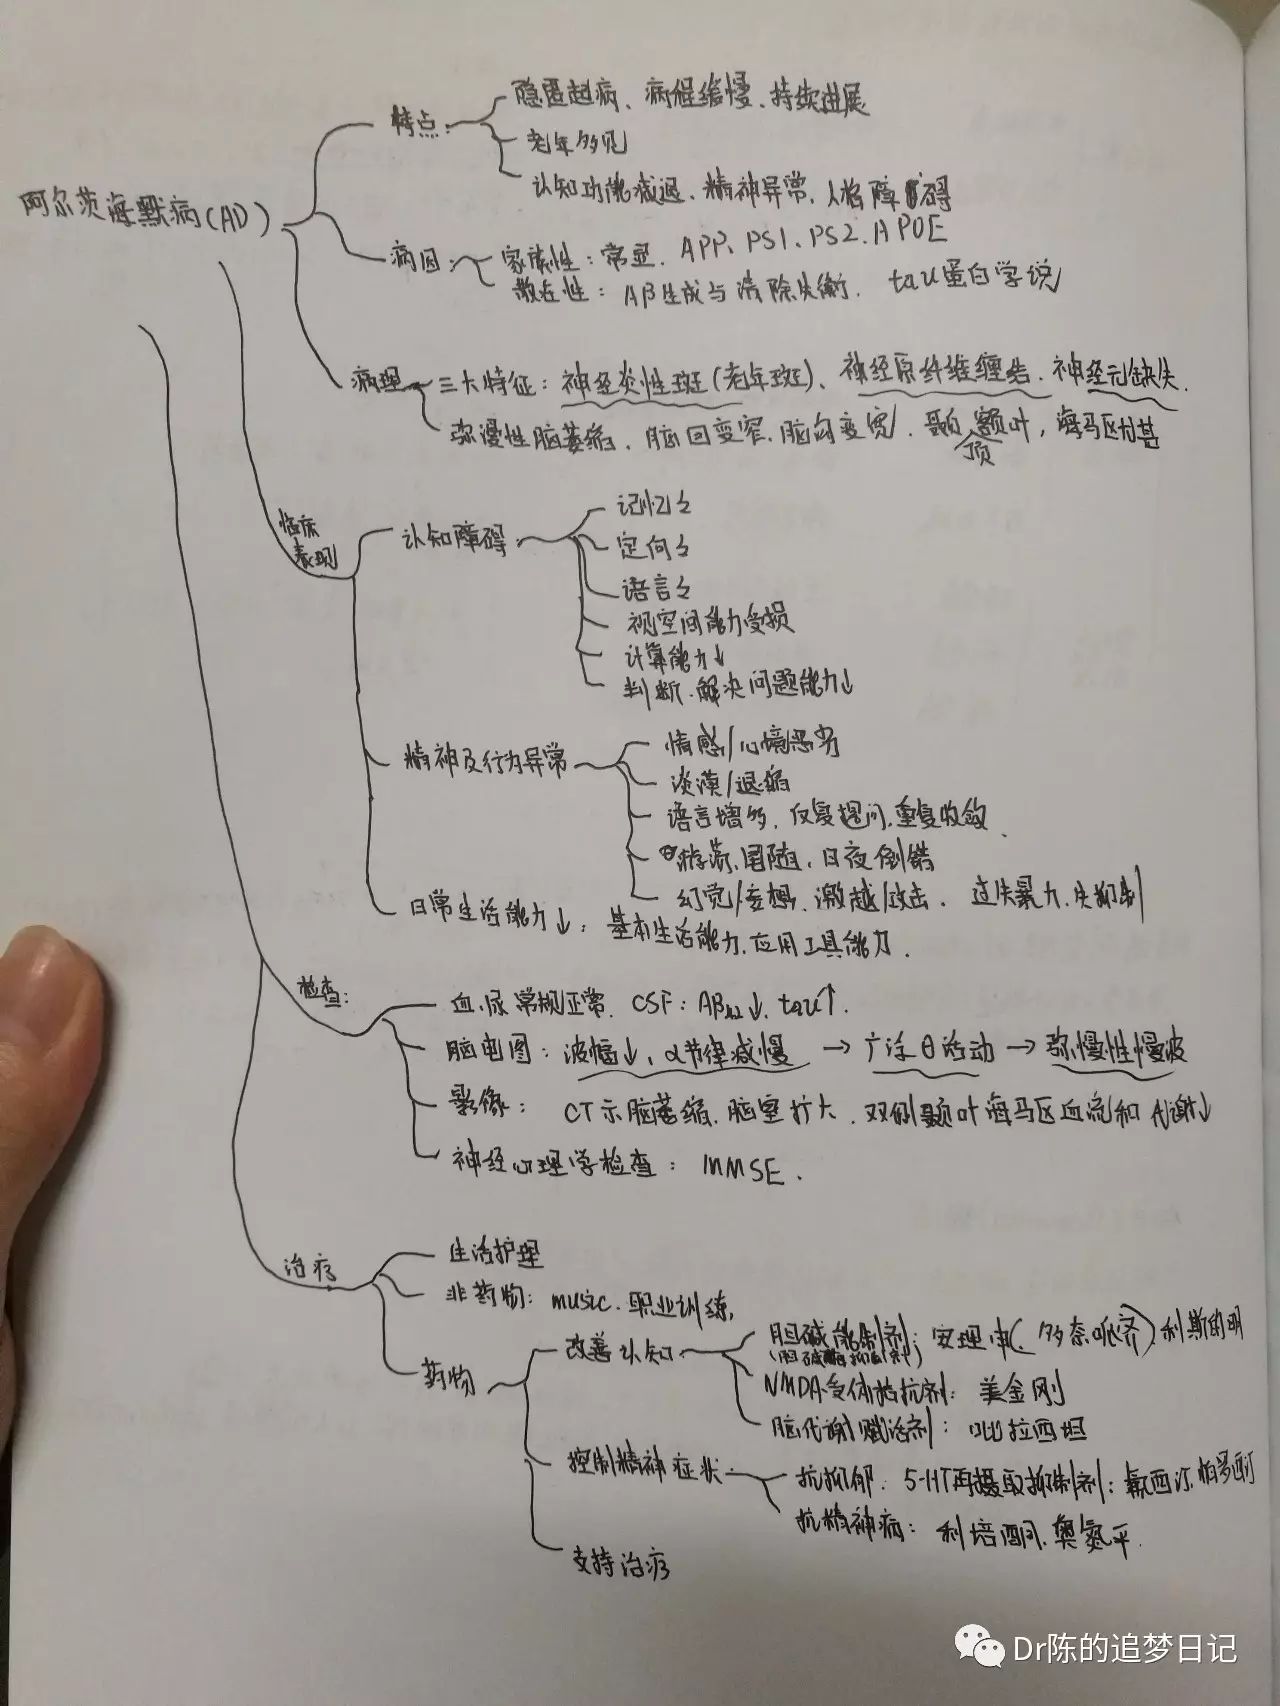 阿尔茨海默病(AD)
特点:
隐匿起病、病程缓慢、持续进展
老年多见
认知功能减退、精神异常、人格障碍
病因:
家族性:常显、APP、PS1、PS2、APOE
散在性:Aβ生成与清除失衡、tau蛋白学说
病理
三大特征:神经炎性斑(老年斑)、神经原纤维缠结、神经元缺失
弥漫性脑萎缩、脑回变窄、脑沟变宽、颞叶,海马区为甚
顶
临床
表现
认知障碍
记忆
定向
语言
视空间能力受损
计算能力↓
判断、解决问题能力↓
精神及行为异常
情感/心境恶劣
淡漠/退缩
语言增多、反复提问、重复收敛
游荡、尾随、日夜倒错
幻觉/妄想、激越/攻击、过失暴力、失抑制
日常生活能力↓:基本生活能力、应用工具能力.
检查:
血、尿常规正常、CSF:Aβ42↓、tau↑.
脑电图:波幅↓、α节律减慢→广泛θ活动→弥慢性慢波
影像:CT示脑萎缩、脑室扩大、双侧颞叶海马区血流和代谢↓
神经心理学检查:MMSE.
治疗
生活护理
非药物:music、职业训练,
药物
改善认知
胆碱能制剂:安理申(多奈哌齐)利斯的明
(胆碱酯酶抑制剂)
NMDA受体拮抗剂:美金刚
脑代谢赋活剂:吡拉西坦
控制精神症状
抗抑郁:5-HT再摄取抑制剂:氟西汀、帕罗西汀
抗精神病:利培酮、奥氮平.
支持治疗
Dr陈的追梦日记